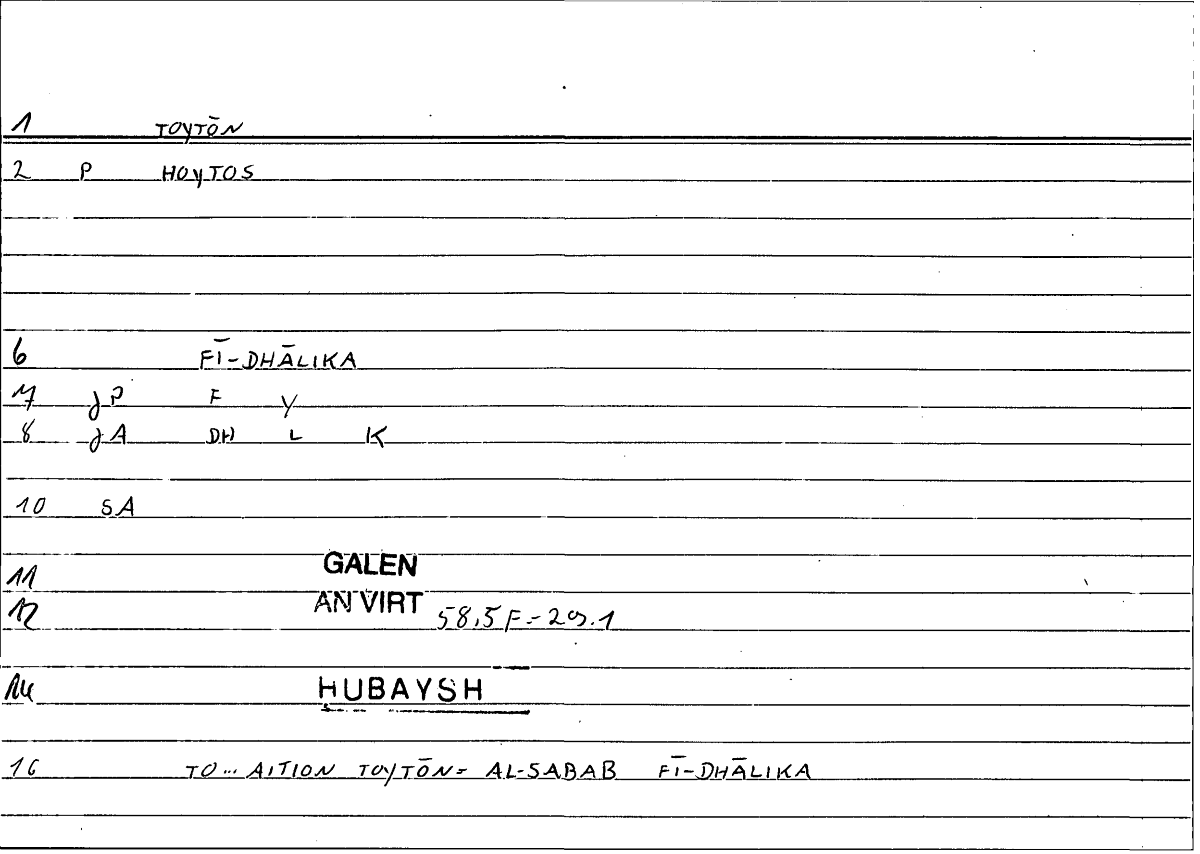 1 TOYTŌN
2 P HOYTOS
6 FĪ-DHĀLIKA
7 JP F Y
8 JA DH L K
10 SA
11 GALEN
12 AN VIRT 58,5 F = 29.1
14 HUBAYSH
16 TO... AITION TOYTŌN = AL-SABAB FĪ-DHĀLIKA